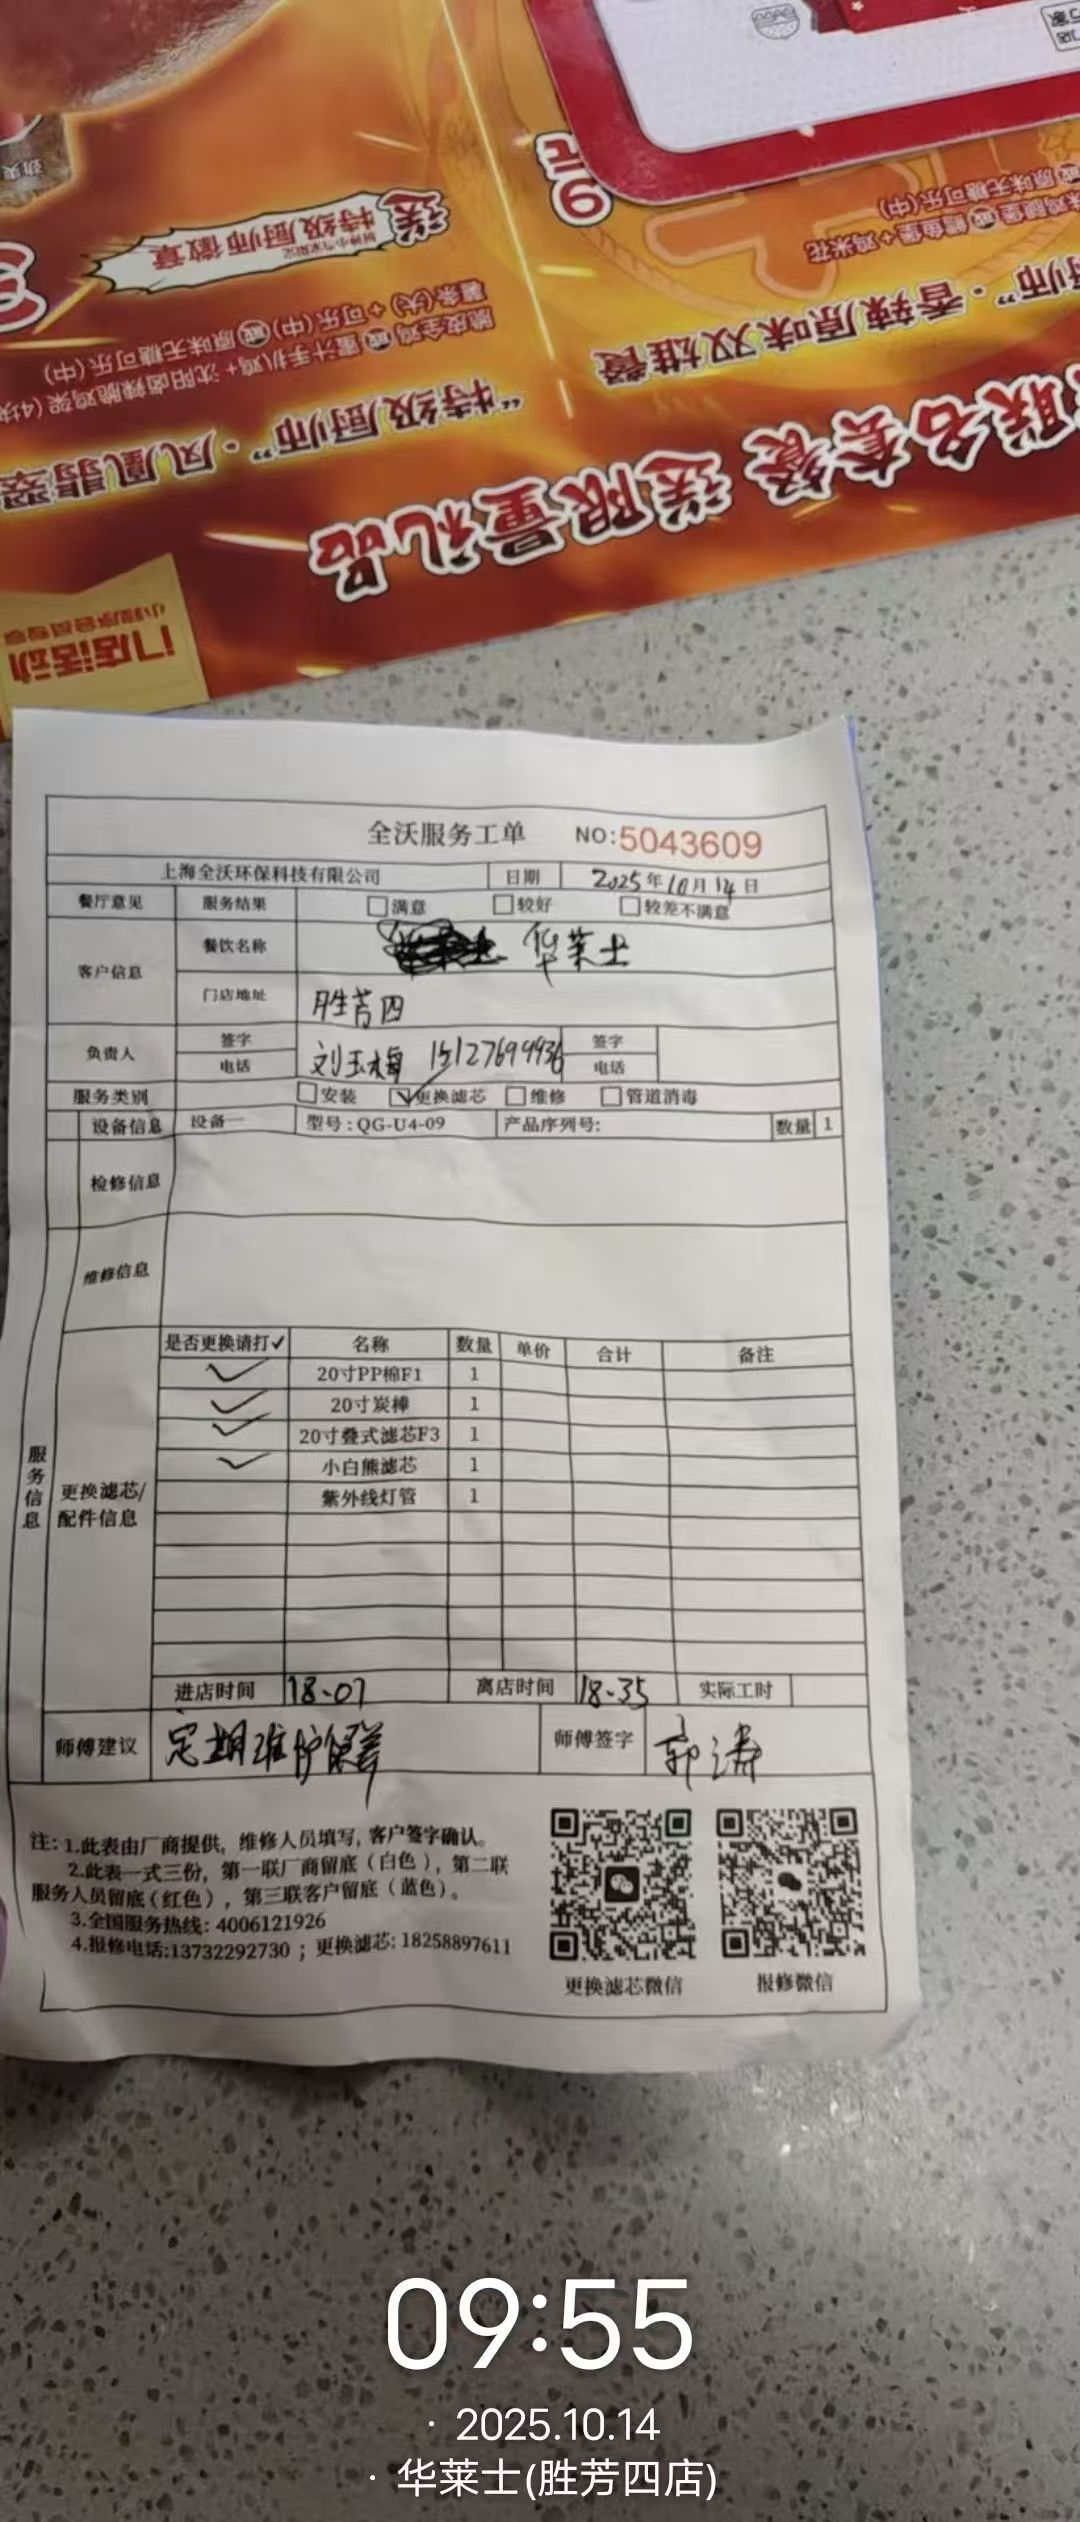 9元
送
特级厨师徽章
味鸡腿堡 或 鳕鱼堡 + 鸡米花
或 原味无糖可乐(中)
脆皮全鸡 或 蜜汁手扒鸡 + 沈阳卤辣脆鸡架(4块)
薯条(大) + 可乐(中) 或 原味无糖可乐(中)
厨师”·香辣原味双雄餐
“特级厨师”·凤凰翡翠
联名套餐 送限量礼品
门店活动
小程序会员专享
全沃服务工单 NO:5043609
上海全沃环保科技有限公司 日期 2025年10月14日
餐厅意见 服务结果 满意 较好 较差不满意
客户信息 餐饮名称 华莱士
门店地址 胜芳四
负责人 签字 电话 刘玉梅 15127699936 签字 电话
服务类别 安装 ✓更换滤芯 维修 管道消毒
设备信息 设备一 型号:QG-U4-09 产品序列号: 数量 1
检修信息
维修信息
服务信息
更换滤芯/配件信息
是否更换请打✓ 名称 数量 单价 合计 备注
✓ 20寸PP棉F1 1
✓ 20寸炭棒 1
✓ 20寸叠式滤芯F3 1
✓ 小白熊滤芯 1
紫外线灯管 1
进店时间 18.07 离店时间 18.35 实际工时
师傅建议 定期维护保养 师傅签字 郭涛
注:1.此表由厂商提供，维修人员填写,客户签字确认。
2.此表一式三份，第一联厂商留底（白色），第二联
服务人员留底（红色），第三联客户留底（蓝色）。
3.全国服务热线: 4006121926
4.报修电话:13732292730 ；更换滤芯: 18258897611
更换滤芯微信 报修微信
09:55
· 2025.10.14
· 华莱士(胜芳四店)